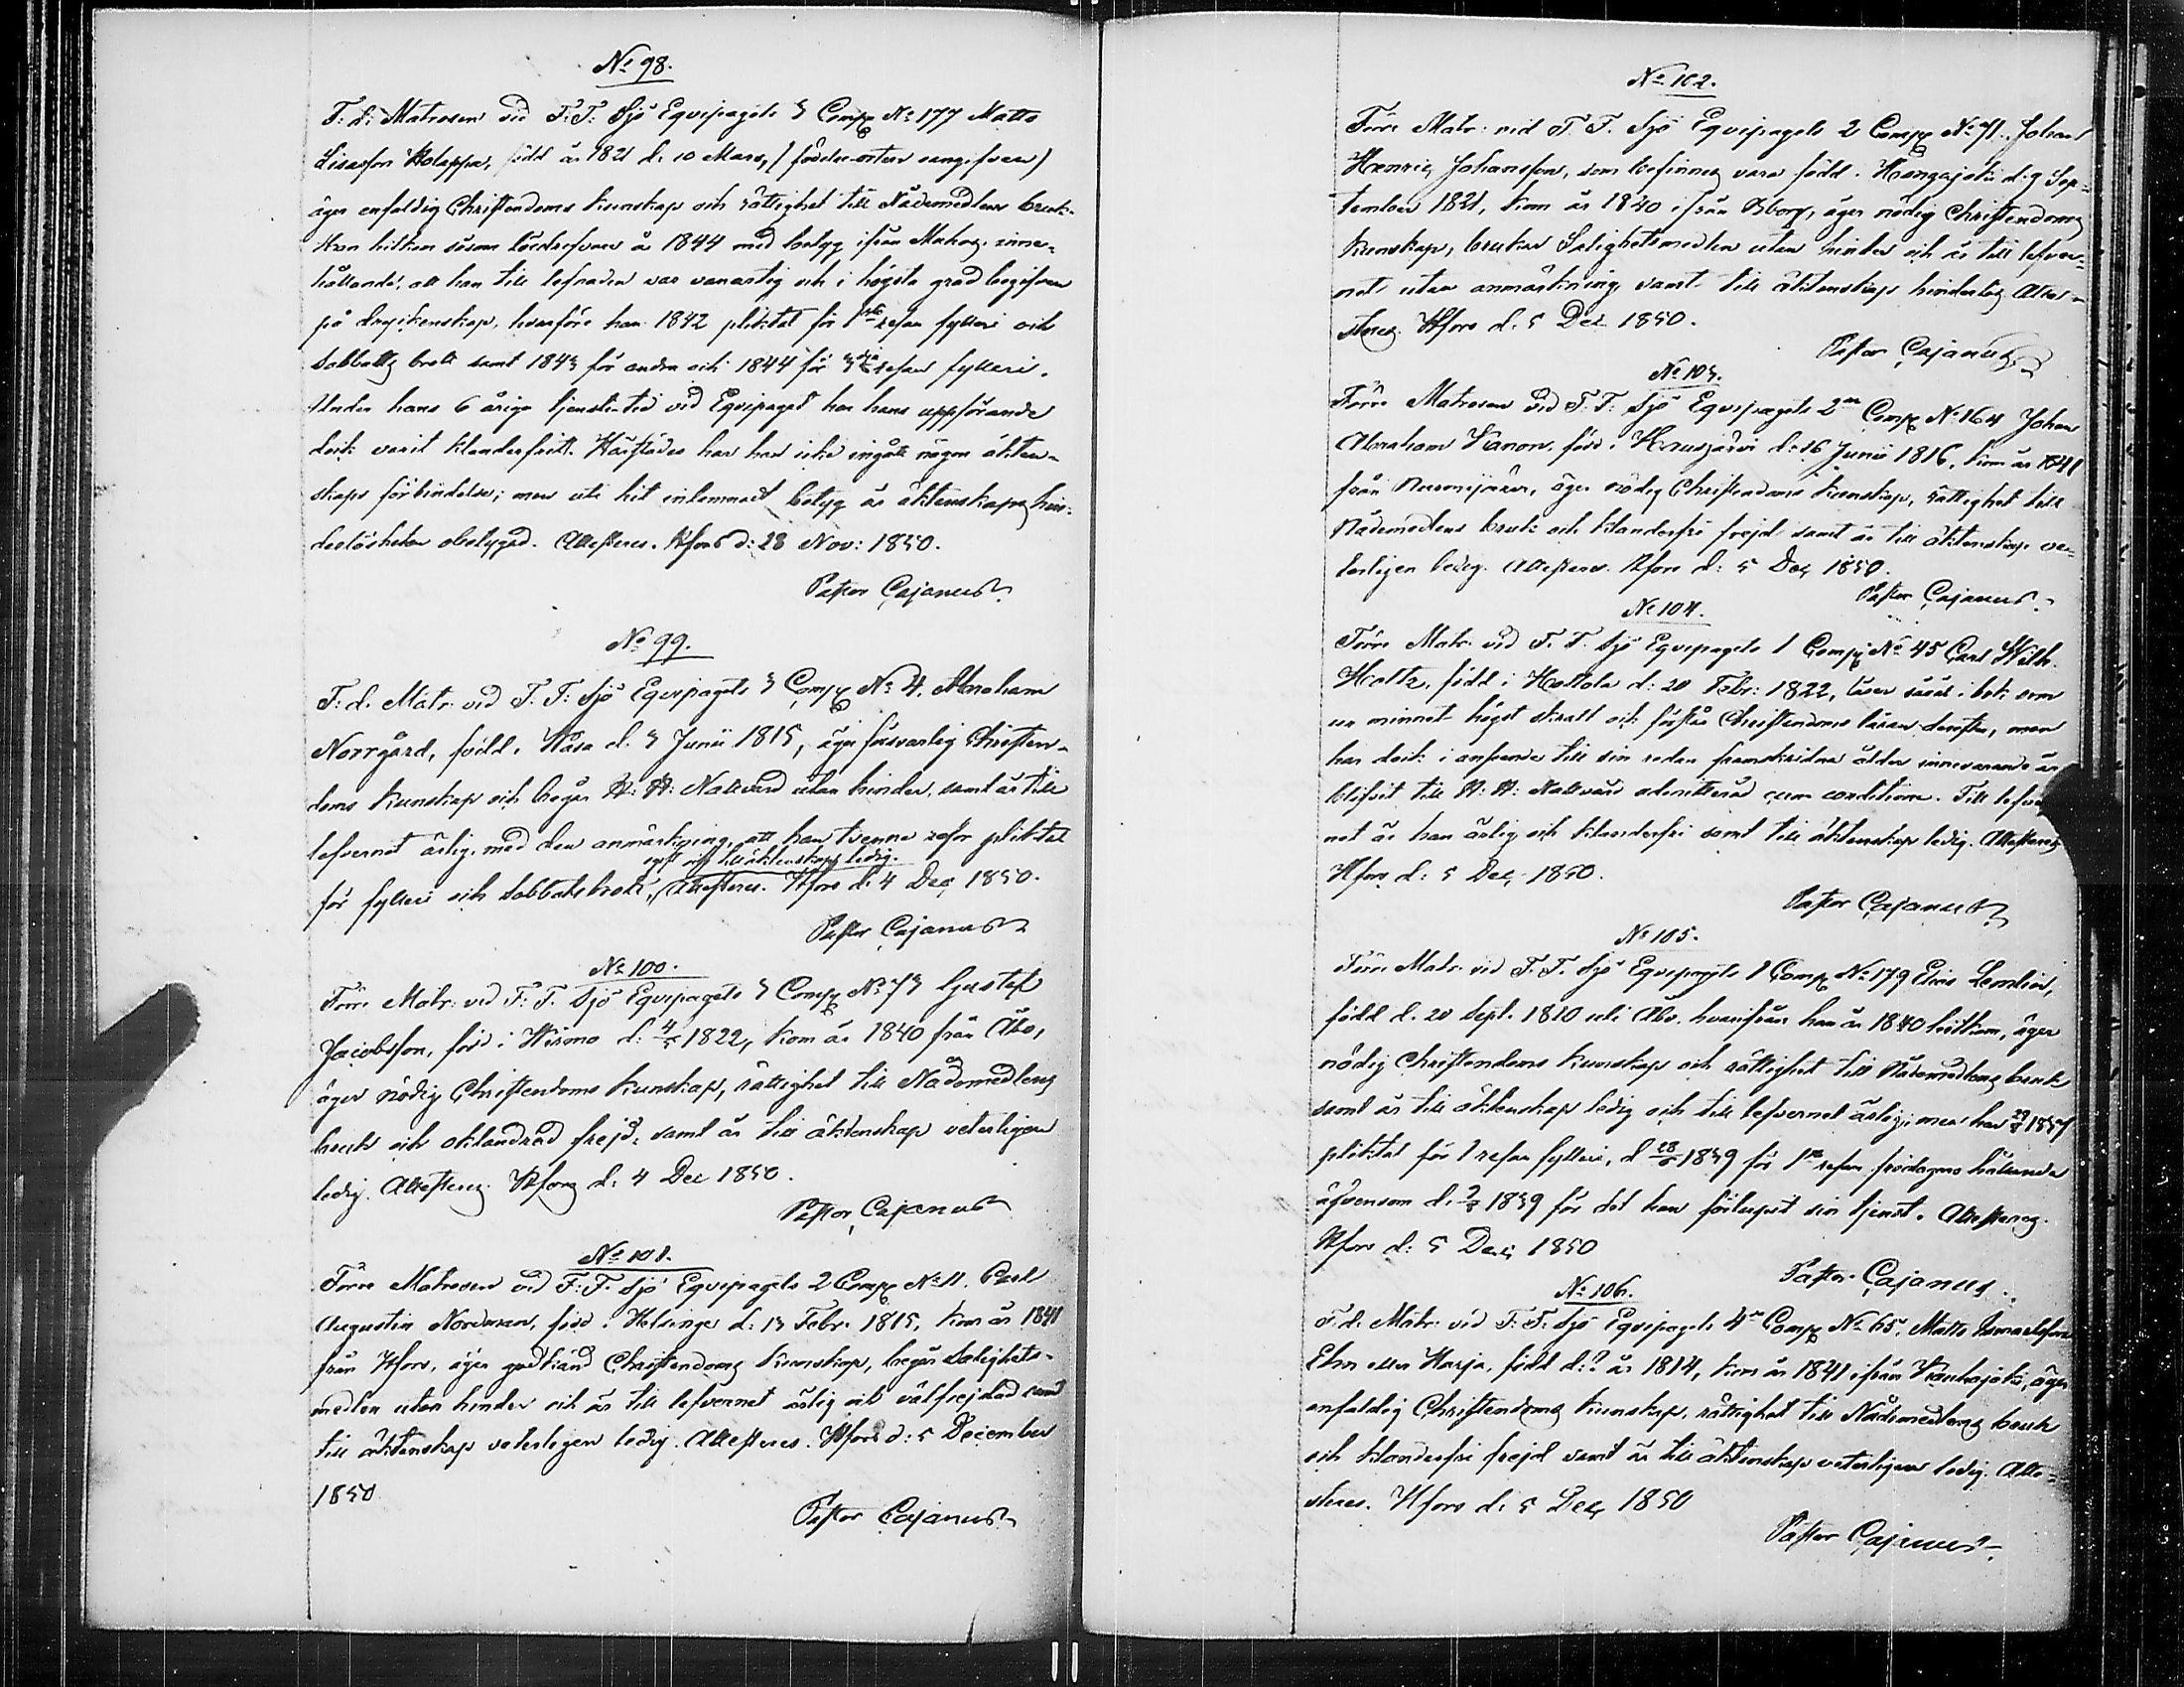 No 98.
F. d. Matrosen vid F. F. Sjö Equipagets 3 Comp No 177 Matts
Lisasson Holappa, född år 1821 d. 10 Mars, (födelse-orten oangifven)
äger enfaldig Christendoms kunskap och rättighet till Nådemedlens bruk.
Han hitkom såsom lösdrifvare år 1844 med betyg ifrån inne-
hållande, att han till lefnaden var vanartig och i högsta grad begifven
på dryckenskap, hvarföre han 1842 pliktat för 1sta resan fylleri och
Sabbats brott samt 1843 för andra och 1844 för 3dje resan fylleri.
Under hans 6 åriga tjenstetid vid Equipaget har hans uppförande
dock varit klanderfritt. Härstädes har han icke ingått någon äkten-
skaps förbindelse; men uti hit inlemnadt betyg är äktenskaps hin-
derlösheten obetygad. Attesteras. Hfors d: 28 Nov: 1850.
Pastor Cajanus
No 99.
F. d. Matr. vid F. F. Sjö Equipagets 3 Comp No 4, Abraham
Norrgård, född i Wasa d. 3 Junii 1815, äger försvarlig Christen-
doms kunskap och begår H. H. Nattvard utan hinder, samt är till
lefvernet ärlig, med den anmärkning att han tvenne resor pliktat
till äktenskap ledig.
för fylleri och Sabbatsbrott, Attesteras. Hfors d. 4 Dec 1850.
Pastor Cajanus
No 100.
Förre Matr. vid F. F. Sjö Equipagets 3 Comp No 73 Gustaf
Jacobsson, född i Wirmo d. 4/5 1822, kom år 1840 från Åbo,
äger nödig Christendoms kunskap, rättighet till Nådemedlens
bruk och oklandrad frejd, samt är till äktenskap veterligen
ledig. Attesteras. Hfors d. 4 Dec 1850.
Pastor Cajanus
No 101.
Förre Matrosen vid F. F. Sjö Equipagets 2 Comp No 11. Carl
Augustin Nordman, född i Helsinge d: 13 Febr. 1815, kom år 1841
från Hfors, äger godkänd Christendoms kunskap, begår Salighets-
medlen utan hinder och är till lefvernet ärlig och välfrejdad samt
till äktenskap veterligen ledig. Attesteras. Hfors d: 5 December
1850
Pastor Cajanus
No 102.
Förre Matr. vid F. F. Sjö Equipagets 2 Comp No 71. Johan
Henric Johansson, som befinnes vara född i d. 9 Sep-
tember 1821, kom år 1840 ifrån Borg, äger nödig Christendoms
kunskap, brukar Salighetsmedlen utan hinder och är till lefver-
net utan anmärkning samt till äktenskap hinderlös. Atte-
steras. Hfors d. 5 Dec 1850.
Pastor Cajanus
No 103.
Förre Matrosen vid F. F. Sjö Equipagets 2dra Comp No 164 Johan
Abraham Kanon, född i Hausjärvi d. 16 Junii 1816, kom år 1841
från Nurmijärvi, äger nödig Christendoms kunskap, rättighet till
Nådemedlens bruk och klanderfri frejd samt är till äktenskap ve-
terligen ledig. Attesteras. Hfors d: 5 Dec 1850.
Pastor Cajanus
No 104.
Förre Matr. vid F. F. Sjö Equipagets 1 Comp No 45 Carl Wilh.
Holtz, född i Hollola d: 20 Febr: 1822, läser såväl i bok som
ur minnet högst skralt och förstår Christendoms läran derefter, men
har dock i anseende till sin redan framskridna ålder innevarande år
blifvit till H. H. Nattvard admitterad cum conditione. Till lefver-
net är han ärlig och klanderfri samt till äktenskap ledig. Attesteras
Hfors d: 5 Dec 1850.
Pastor Cajanus
No 105.
Förre Matr. vid F. F. Sjö Equipagets 1 Comp No 179 Elias Lemlin,
född d. 20 Sept. 1810 uti Åbo, hvarifrån han år 1840 hitkom, äger
nödig Christendoms kunskap och rättighet till Nådemedlens bruk
samt är till äktenskap ledig och till lefvernet ärlig; men har 1837
pliktat för 1 resan fylleri, d 28/5 1839 för 1a resan hållande
äfvensom d. 1839 för det han förlupit sin tjenst. Attesteras.
Hfors d: 5 Dec 1850
Pastor Cajanus
No 106.
F. d. Matr. vid F. F. Sjö Equipagets 4de Comp No 65. Matts Ismaelsson
eller Harja, född d: ? år 1814, kom år 1841 ifrån Kauhajoki, äger
enfaldig Christendoms kunskap, rättighet till Nådemedlens bruk
och klanderfri frejd samt är till äktenskap veterligen ledig. Atte-
steras. Hfors d. 5 Dec 1850
Pastor Cajanus